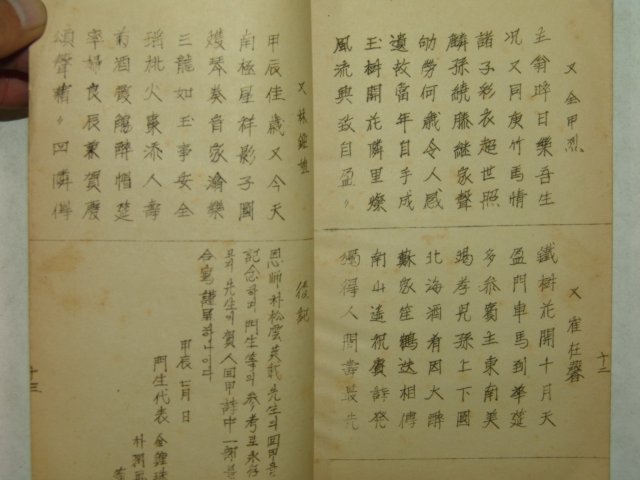 又 金甲烈
主翁晬日樂吾生
況又同庚竹馬情
諸子彩衣超世照
麟孫繞膝継家聲
劬勞何歲令人感
遺敀當年自手成
玉樹開花隣里燦
風流興致自盈〃
又 崔在馨
鐵樹花開十月天
盈門車馬到華筵
多参賓主東南美
竭孝兒孫上下圓
北海酒肴因大醉
蘇家笙鶴迭相傳
南山遙祝賓詩発
獨得人間壽最先
十二
又 林鍾
甲辰佳歲又今天
南極星祥影子圓
琴奏音家瀹樂
三龍如玉事安全
瑶桃火棗添人壽
酒霞觴醉帽
率婦良辰兼賀慶
頌聲 四隣傳
後記
恩師朴松雲英 先生의 回甲을
記念하며 門生等의 参考로 永存
코저 先生의 賀人回甲詩中 一部를
合寫謹呈하나이다
甲辰 七月 日
門生代表 金鍾
朴
十三